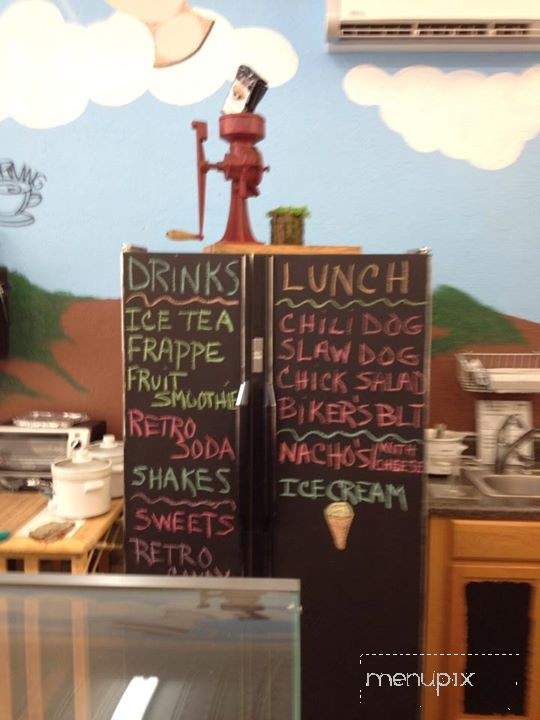 DRINKS
ICE TEA
FRAPPE
FRUIT
SMOOTHIE
RETRO
SODA
SHAKES
SWEETS
RETRO
LUNCH
CHILI DOG
SLAW DOG
CHICK SALAD
BIKER'S BLT
NACHO'S/WITH
CHEESE
ICE CREAM
menupix